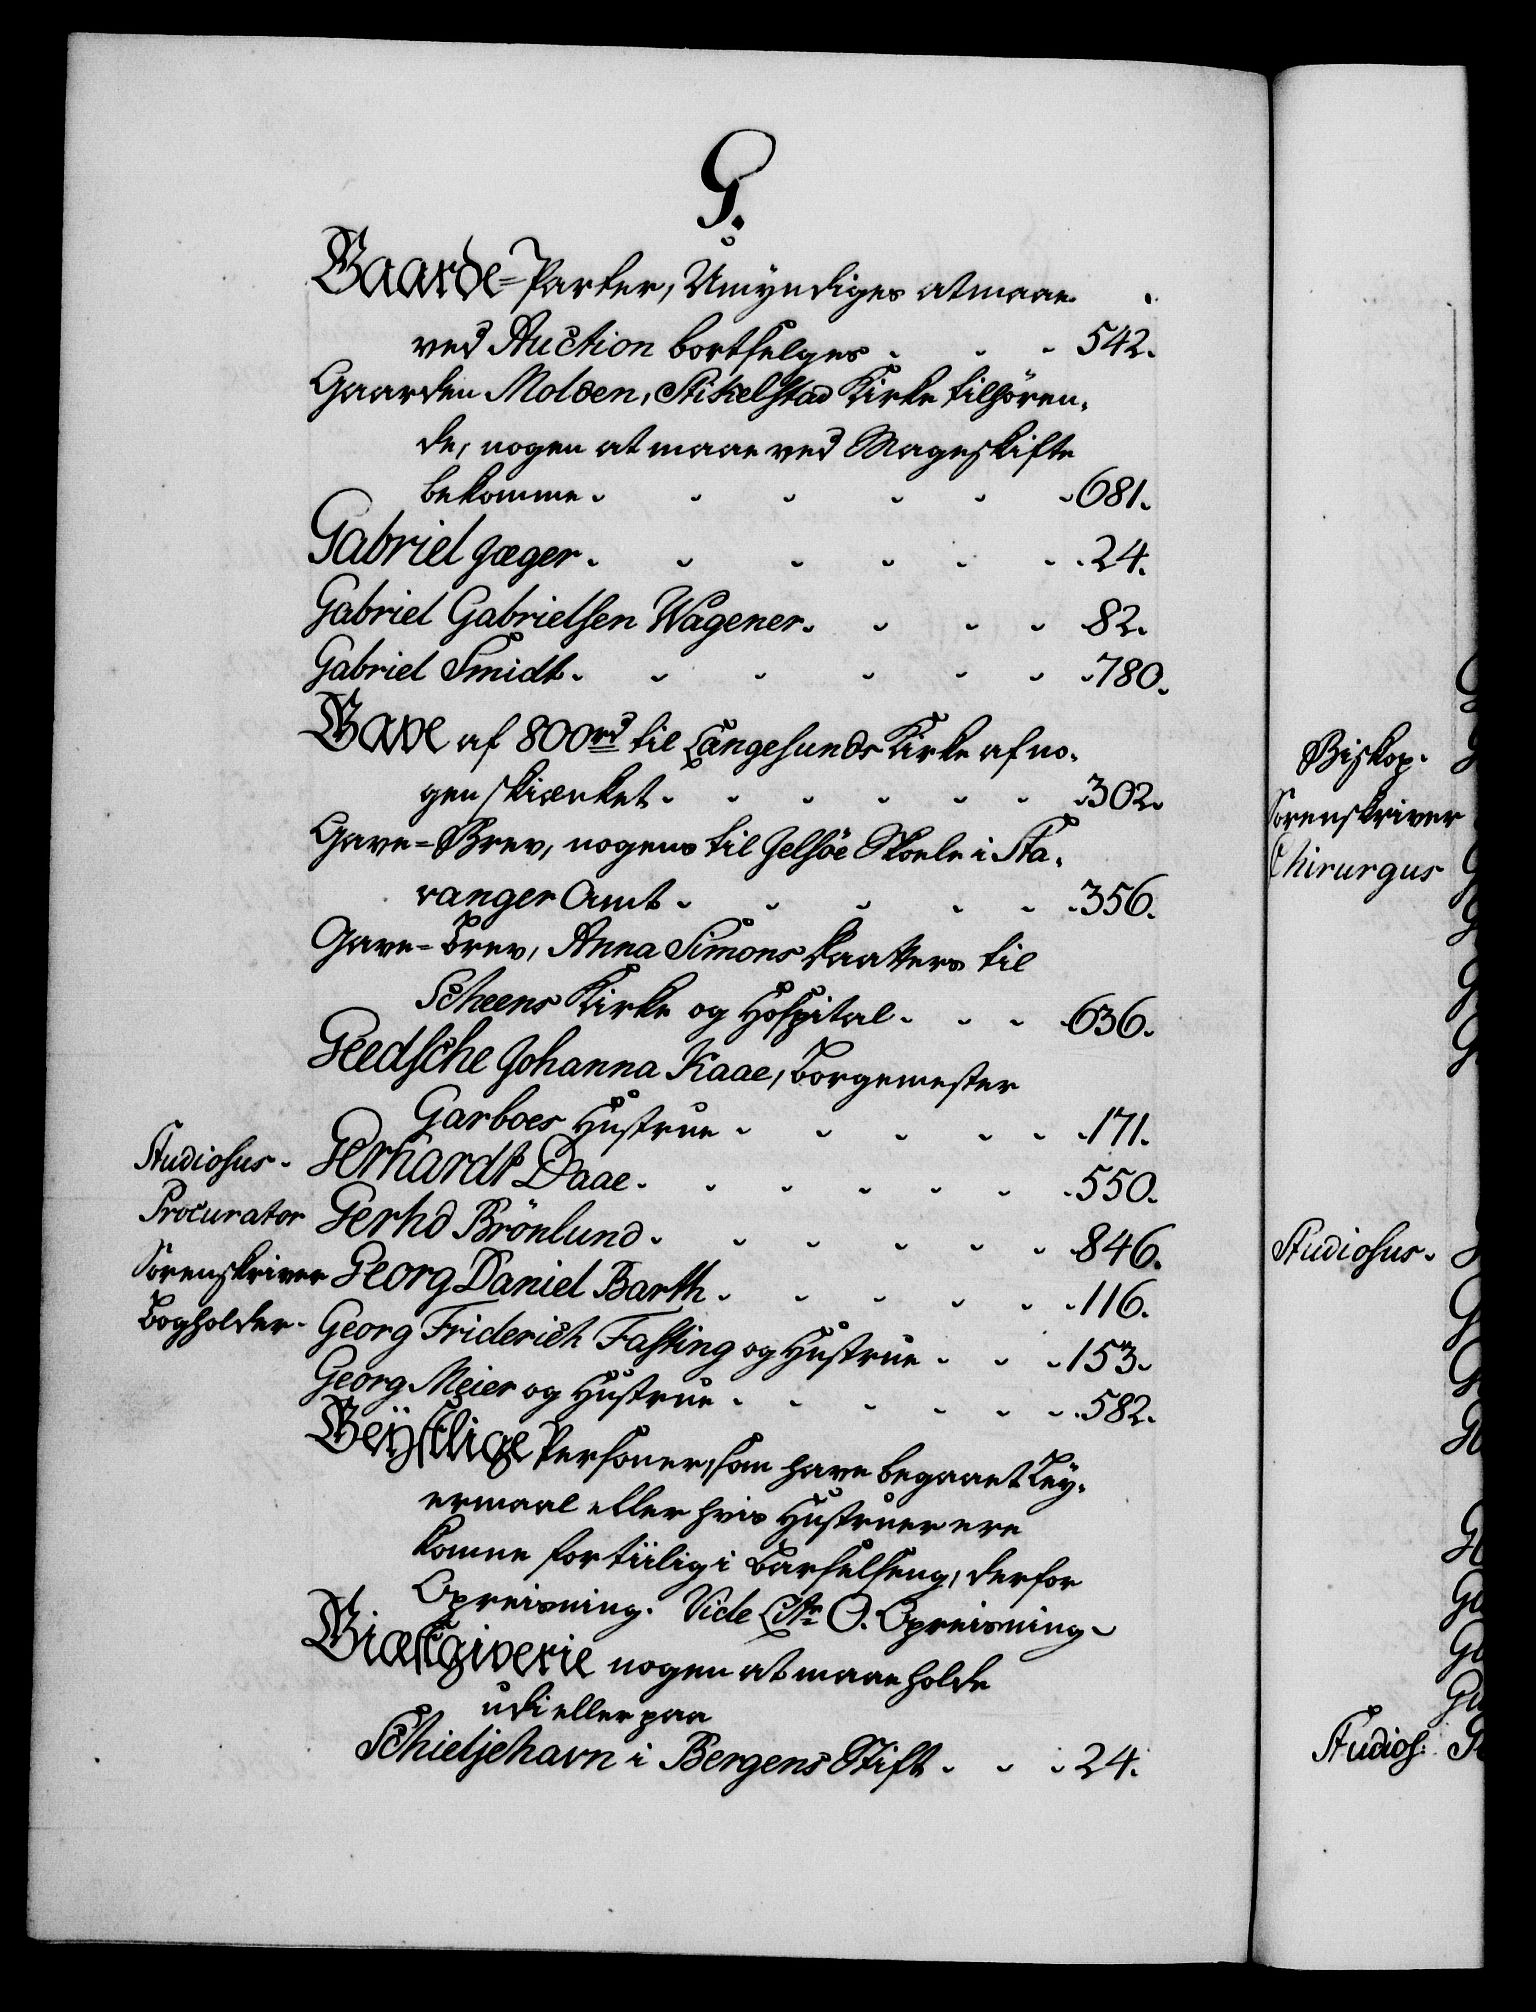 G.
Gaarde-Parter, Umyndiges at maae
ved Auction bortselges. 542.
Gaarden Molden, Stikelstad Kirke tilhören-
de, nogen at maae ved Mageskifte
bekomme. 681.
Gabriel Jæger. 24.
Gabriel Gabrielsen Wagener. 82.
Gabriel Smidt. 780.
Gave af 800 rd til Langesunds Kirke af no-
gen skienket. 302.
Gave-Brev, nogens til Jelsöe Skoele i Sta-
vanger Amt. 356.
Gave-Brev, Anna Simons Daatters til
Scheens Kirke og Hospital. 636.
Geedsche Johanna Kaae, Borgemester
Garboes Hustrue. 171.
Studiosus. Gerhardt Daae. 550.
Procurator Gerhd Brönlund. 846.
Sorenskriver Georg Daniel Barth. 116.
Bogholder. Georg Friderich Fasting og Hustrue. 153.
Georg Meier og Hustrue. 582.
Geÿstlige Personer, som have begaaet Leÿ-
ermaal eller hvis Hustruer ere
komne for tiilig i Barselseng, derfor
Opreisning. Vide Litr O. Opreisning.
Giæstgiverie nogen at maae holde
udi eller paa
Schieljehavn i Bergens Stift. 24.
Biskop.
Sorenskriver
Chirurgus
Studiosus.
Studios: